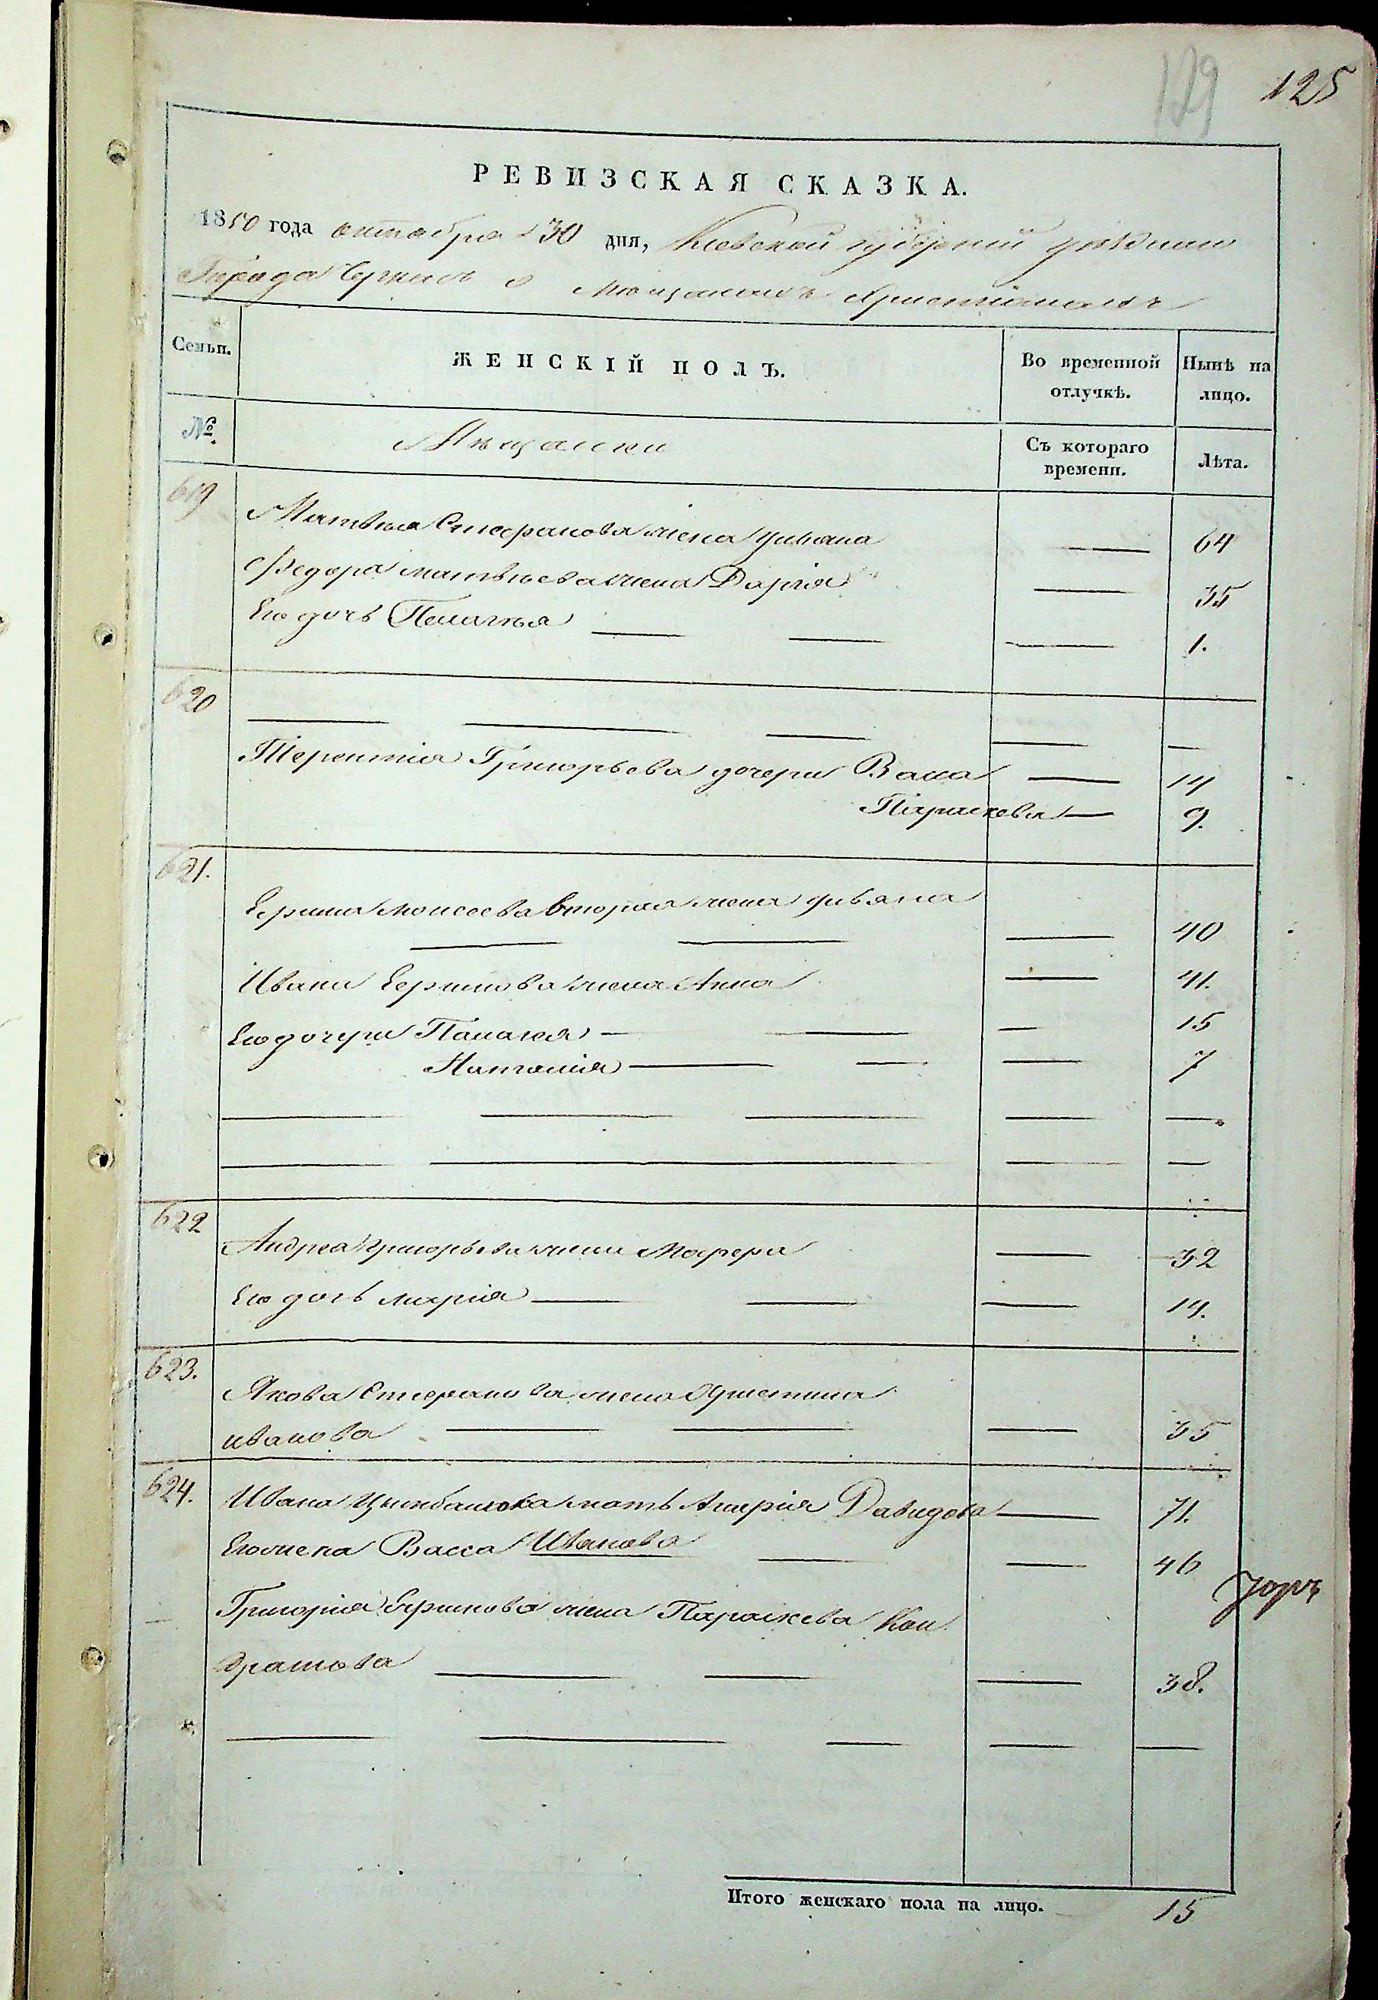 129 125
РЕВИЗСКАЯ СКАЗКА.
1850 года октября 30 дня, Киевской губерній уѣзнаго
Города Черкасъ о Мѣщанахъ Христіанахъ
Семьи. ЖЕНСКІЙ ПОЛЪ. Во временной отлучкѣ. Нынѣ на лицо.
№. Мѣщански Съ котораго времени. Лѣта.
619
Матвѣя Стефанова жена Ульяна — 64
Федора Матвѣева жена Дарія — 35
Его дочь Пелагія — — — 1.
620
— — — — —
Терентія Григорьева дочери Васса — 14
Параскева — 9.
621.
Ефима Моисеева вторая жена Ульяна
— — — 40
Ивана Ефимова жена Анна — 41.
Его дочери Палагея — — — 15
Наталія — — — 7
— — — — —
— — — —
622
Андрея Григорьева жена Мафра — 32
Его дочь Марія — — — 14.
623.
Якова Стефанова жена Христина
Иванова — — — 35
624.
Ивана Цымбалюка мать Марія Давидова — 71.
Его жена Васса Иванова — — 46
Григорія Ефимова жена Параскева Кон
дратова — — — 38.
— — — — —
Итого женскаго пола на лицо. 15